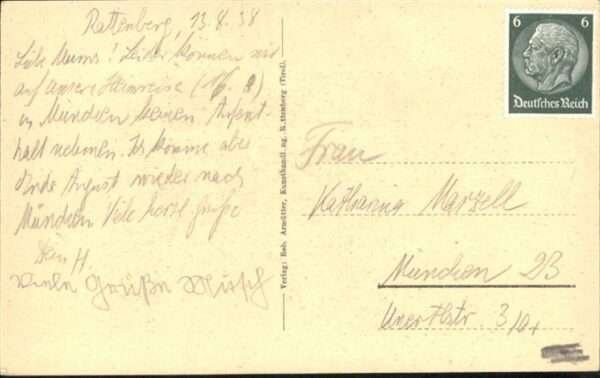 Rattenberg, 13.8.38
Liebe Mums! Leider können wir
auf unsere Heimreise (16. 8)
in München keinen Aufent-
halt nehmen. Ich komme aber
Ende August wieder nach
München Viele herzl. Grüße
Dein H.
Viele Grüße
Verlag: Rob. Armütter, Kunsthandlung, Rattenberg (Tirol).
6 6
Deutsches Reich
Frau
Katharina Marzell
München 23
3/0